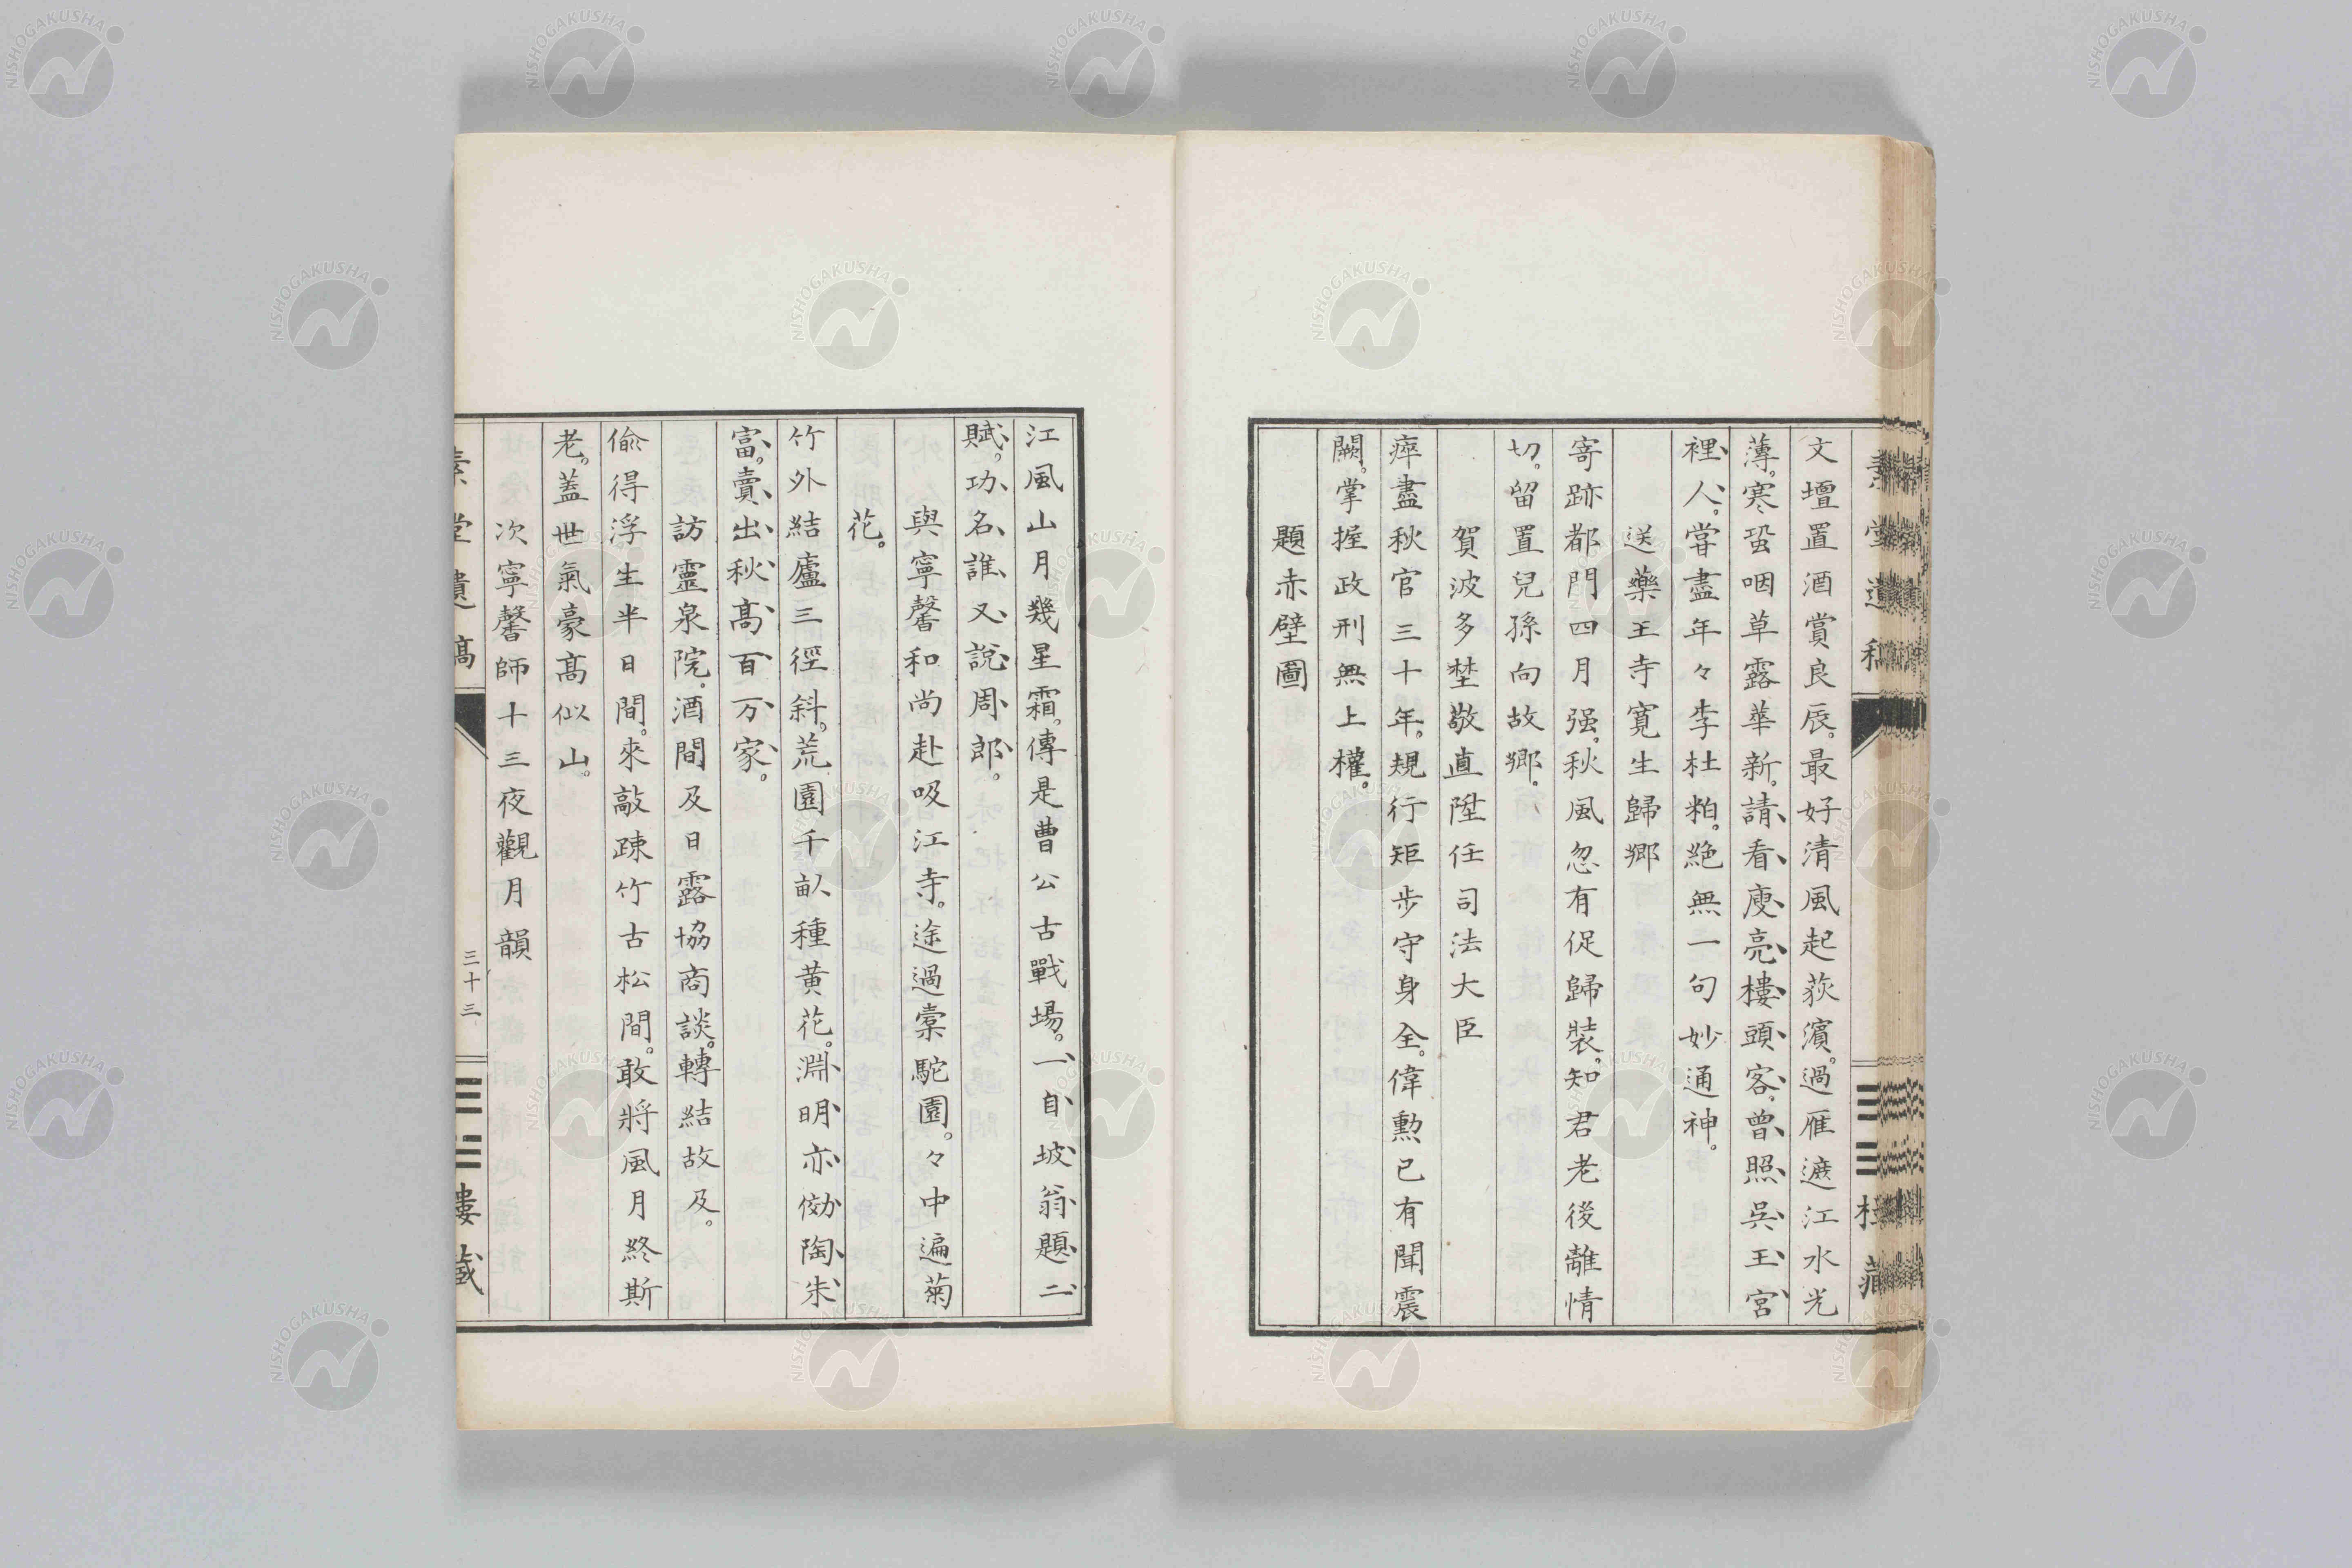 文壇置酒賞良辰。最好清風起荻濱。過雁遮江水光
薄。寒蛩咽草露華新。請看庾亮樓頭客。曾照吳王宮
裡人。甞盡年々李杜粕。絶無一句妙通神。
送藥王寺寛生歸鄉
寄跡都門四月强。秋風忽有促歸裝。知君老後離情
切。留置兒孫向故鄉。
賀波多埜敬直陞任司法大臣
瘁盡秋官三十年。規行矩步守身全。偉勲已有聞震
闕。掌握政刑無上權。
題赤壁圖
江風山月幾星霜。傳是曹公古戰場。一自坡翁題二
賦。功名誰又說周郎。
與寧馨和尚赴吸江寺。途過槖駝園。々中遍菊
花。
竹外結廬三徑斜。荒園千畝種黄花。淵明亦傚陶朱
富。賣出秋高百万家。
訪靈泉院。酒間及日露協商談。轉結故及。
偸得浮生半日間。來敲疎竹古松間。敢將風月終斯
老。蓋世氣豪高似山。
次寧馨師十三夜觀月韻
素堂遺稿
三十三
樓藏
NISHOGAKUSHA